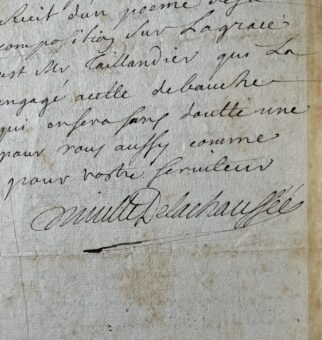 Recit d'un poeme de sa
composition sur Lagrace
est Mr Taillandier qui La
engagé acette debauche
qui ensera sans doutte une
pour vous aussy comme
pour vostre serviteur
Delachaussée